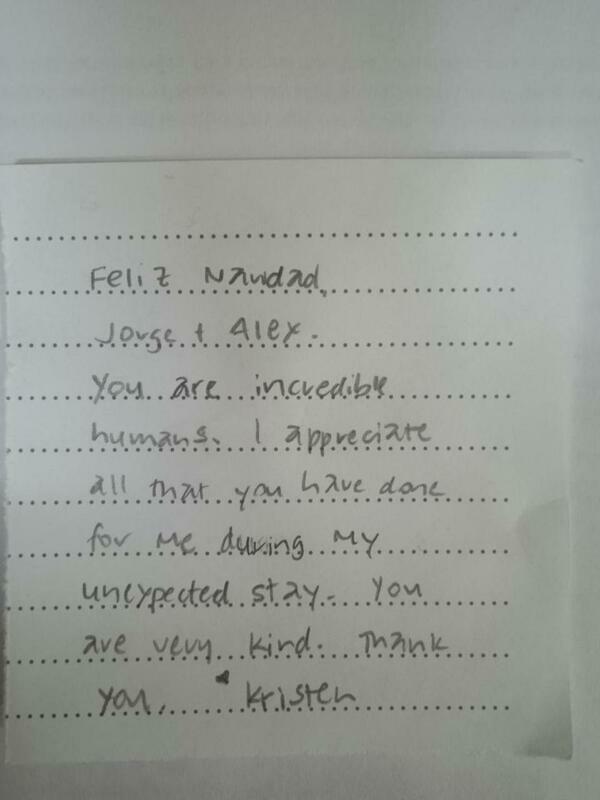 Feliz Navidad,
Jorge + Alex.
You are incredible
humans. I appreciate
all that you have done
for me during my
unexpected stay. You
are very kind. Thank
you, Kristen